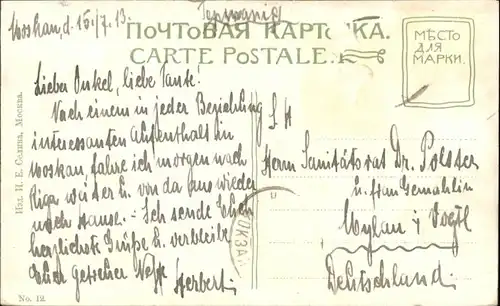 Moskau, d. 15./7.13.
Германия
ПОЧТОВАЯ КАРТОЧКА.
CARTE POSTALE.
МѢСТО
ДЛЯ
МАРКИ.
Lieber Onkel, liebe Tante!
Nach einem in jeder Beziehung
interessanten Aufenthalt in
Moskau, fahre ich morgen nach
Riga weiter u. von da aus wieder
nach Hause. - Ich sende Euch
herzlichste Grüße u. verbleibe
Euer getreuer Neffe Herbert.
S. H
Herrn Sanitätsrat Dr. Polster
u. frau Gemahlin
Mylau i Vogtl
Deutschland
ВОКЗА
Изд. П. Е. Селина, Москва.
No. 12.